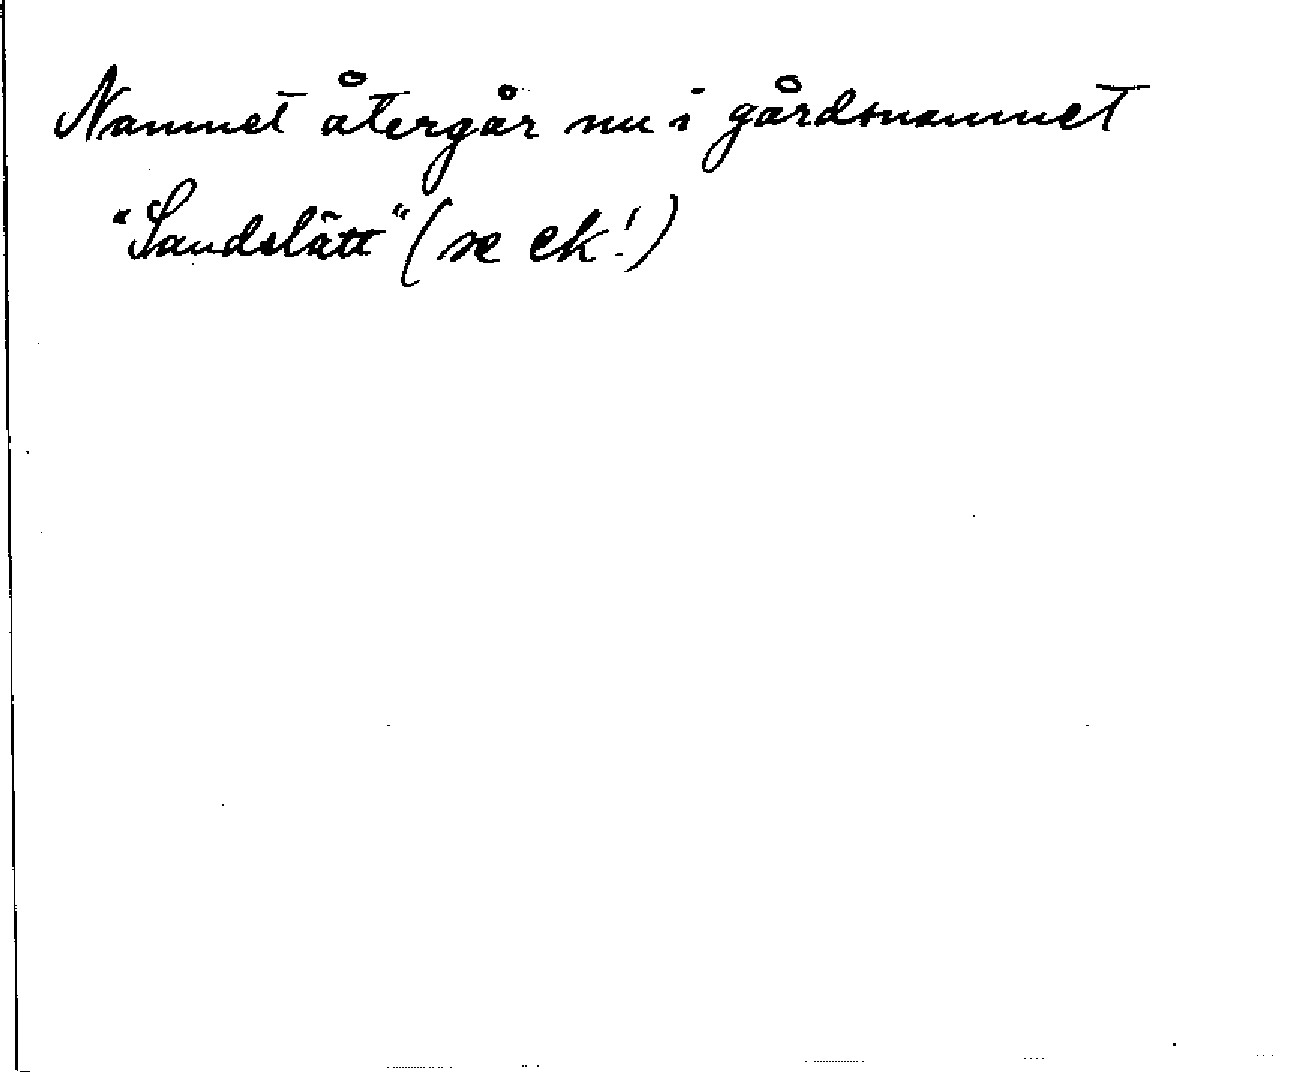 Namnet återgår nu i gårdsnamnet
"Sandslätt" (se ek!)